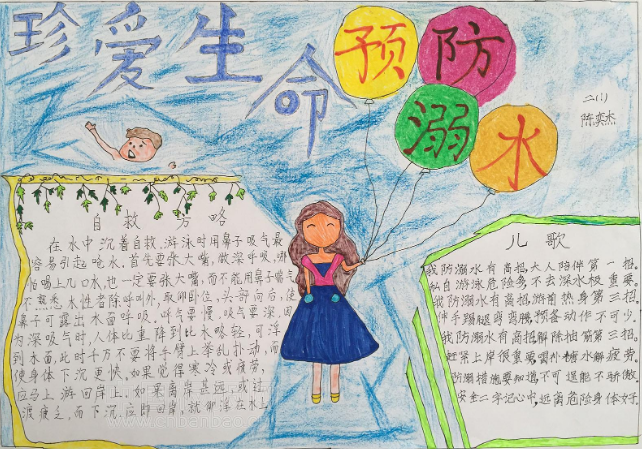 珍爱生命
预防
溺水
二(1)
陈奕杰
自救方略
在水中沉着自救,游泳时用鼻子吸气最
容易引起呛水,首先要张大嘴,做深呼吸,哪
怕喝上几口水,也一定要张大嘴,而不能用鼻子嘴气
不熟悉水性者除呼叫外,取仰卧位,头部向后,使
鼻子可露出水面呼吸,呼气要慢,吸气要深,因
为深吸气时,人体比重降到比水略轻,可浮
到水面,此时千万不要将手臂上举乱扑动,而
使身体下沉更快,如果觉得寒冷或疲劳,
应马上游回岸上。如果离岸甚远,或过
渡疲乏,而下沉,应即回岸。就仰浮在水上
儿歌
我防溺水有高招,大人陪伴第一招.
私自游泳危险多,不去深水极重要。
我防溺水有高招,游前热身第二招
伸手踢腿弯弯腰,预备动作不可少。
我防溺水有高招,解除抽筋第三招。
赶紧上岸很重要,喝外糖水解疲劳。
防溺措施要知道,不可逞能不骄傲
安全二字记心中,远离危险身体好.